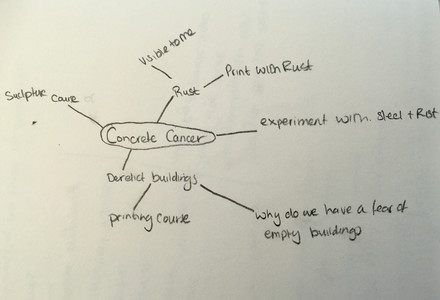 Visible to me
Rust
Print with Rust
Sculpture course
Concrete Cancer
experiment with steel + Rust
Derelict buildings
printing course
why do we have a fear of
empty buildings